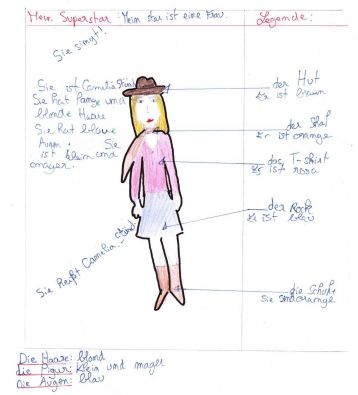 Mein Superstar
Mein star ist eine Frau.
Legende:
Sie singt!
Sie ist Camélia
Sie hat lange und
blonde Haare
Sie hat blaue
Augen. Sie
ist klein und
mager.
Sie heißt Camélia
der Hut
Er ist braun
der
Er ist orange
das T-shirt
Es ist rosa
der Rock
Er ist blau
die Schuhe
Sie sind orange
Die Haare: blond
die Figur: Klein und mager
die Augen: blau